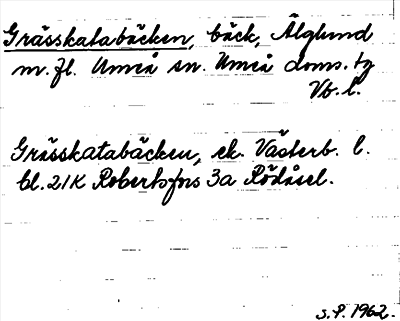 Grässkatabäcken, bäck, Älglund
m.fl. Umeå sn. Umeå doms. tg
Vb. l.
Grässkatabäcken, ek. Västerb. l.
bl. 21K Robertsfors 3a Rödåsel.
S.P. 1962.